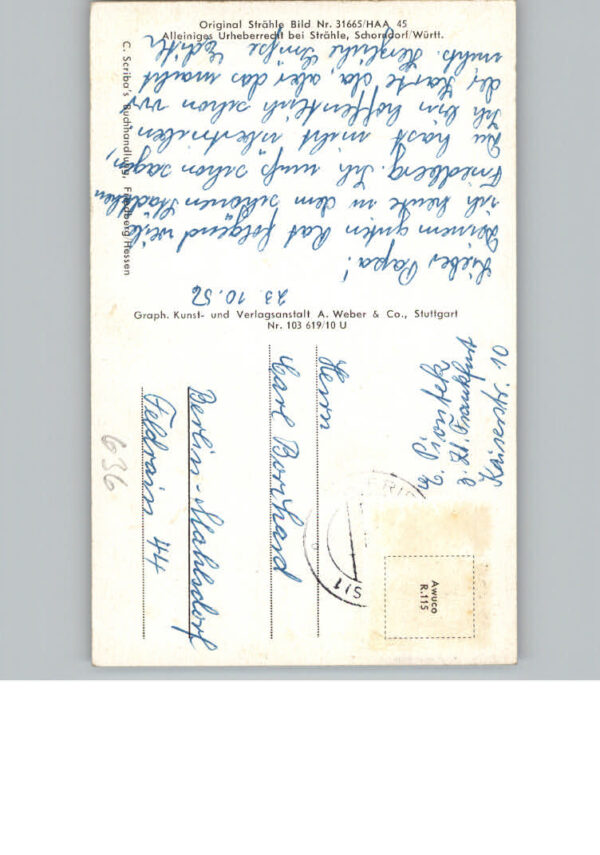 Original Strähle Bild Nr. 31665/HAA 45
Alleiniges Urheberrecht bei Strähle, Schorndorf/Württ.
C. Scriba's Buchhandlung, Friedberg Hessen
23.10.52
Lieber Papa!
Deinem guten Rat folgend weile
ich heute in dem schönen Städtchen
Friedberg. Ich muß schon sagen,
Du hast nicht übertrieben
Ich bin hoffentlich schon vor
der Karte da, aber das macht
nichts. Herzliche Grüße Edith
Graph. Kunst- und Verlagsanstalt A. Weber & Co., Stuttgart
Nr. 103 619/10 U
z. Zt. Frankfurt
Kaiserstr. 10
Awuco
R.115
Herrn
Carl Borchard
Berlin-Mahlsdorf
Feldrain 44
636